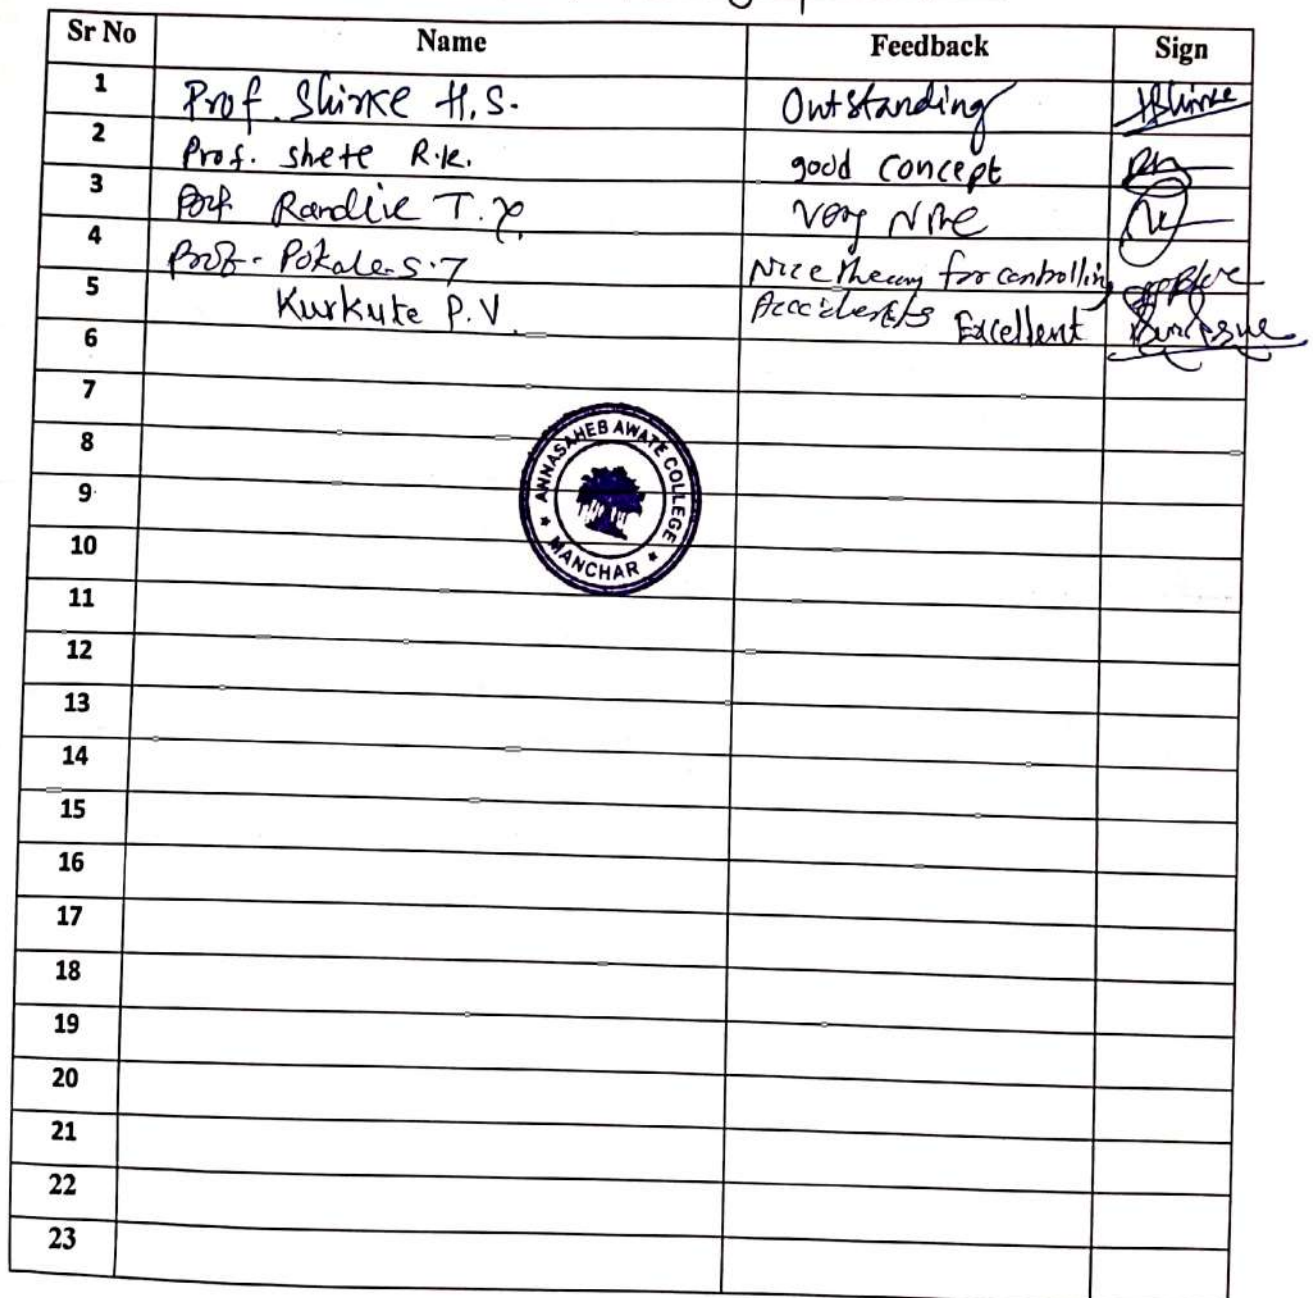 Sr No Name Feedback Sign
1 Prof. Shirke H.S. Outstanding HShirke
2 Prof. shete R.K. good concept
3 Prof Randive T.Y. Very Nice
4 Prof. Pokale S.T Nice theory for controlling
5 Kurkute P.V. Accidents Excellent
6
7
8
9
10
11
12
13
14
15
16
17
18
19
20
21
22
23
ANNASAHEB AWATE COLLEGE
* MANCHAR *